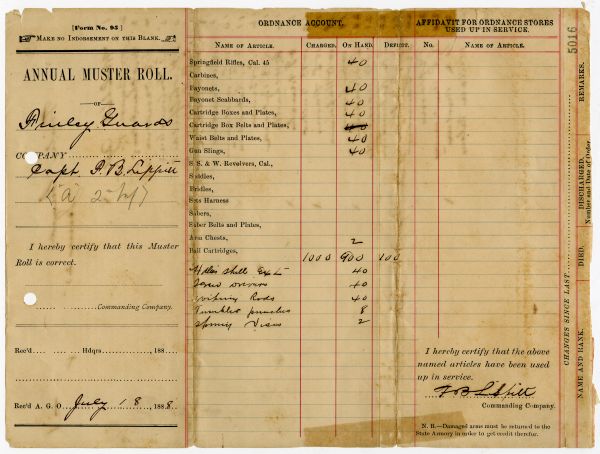 [Form No. 95]
MAKE NO INDORSEMENT ON THIS BLANK.
ANNUAL MUSTER ROLL.
—OF—
Finley Guards
COMPANY
Capt. P. B. Lippitt
("A" 2
I hereby certify that this Muster
Roll is correct.
Commanding Company.
Rec'd Hdqrs. 188
Rec'd A. G. O. July 18 1888.
ORDNANCE ACCOUNT.
NAME OF ARTICLE. CHARGED. ON HAND. DEFICIT.
Springfield Rifles, Cal. 45 40
Carbines,
Bayonets, 40
Bayonet Scabbards, 40
Cartridge Boxes and Plates, 40
Cartridge Box Belts and Plates, 40
Waist Belts and Plates, 40
Gun Slings, 40
S. & W. Revolvers, Cal.,
Saddles,
Bridles,
Sets Harness
Sabers,
Saber Belts and Plates,
Arm Chests, 2
Ball Cartridges, 1000 900 100
shell Ext 40
Screw drivers 40
wiping Rods 40
Tumbler punches 8
Spring Vises 2
AFFIDAVIT FOR ORDNANCE STORES
USED UP IN SERVICE.
No. NAME OF ARTICLE.
I hereby certify that the above
named articles have been used
up in service.
Lippitt
Commanding Company.
N. B.—Damaged arms must be returned to the
State Armory in order to get credit therefor.
5016
CHANGES SINCE LAST
NAME AND RANK. DIED. DISCHARGED. REMARKS.
Number and Date of Order.